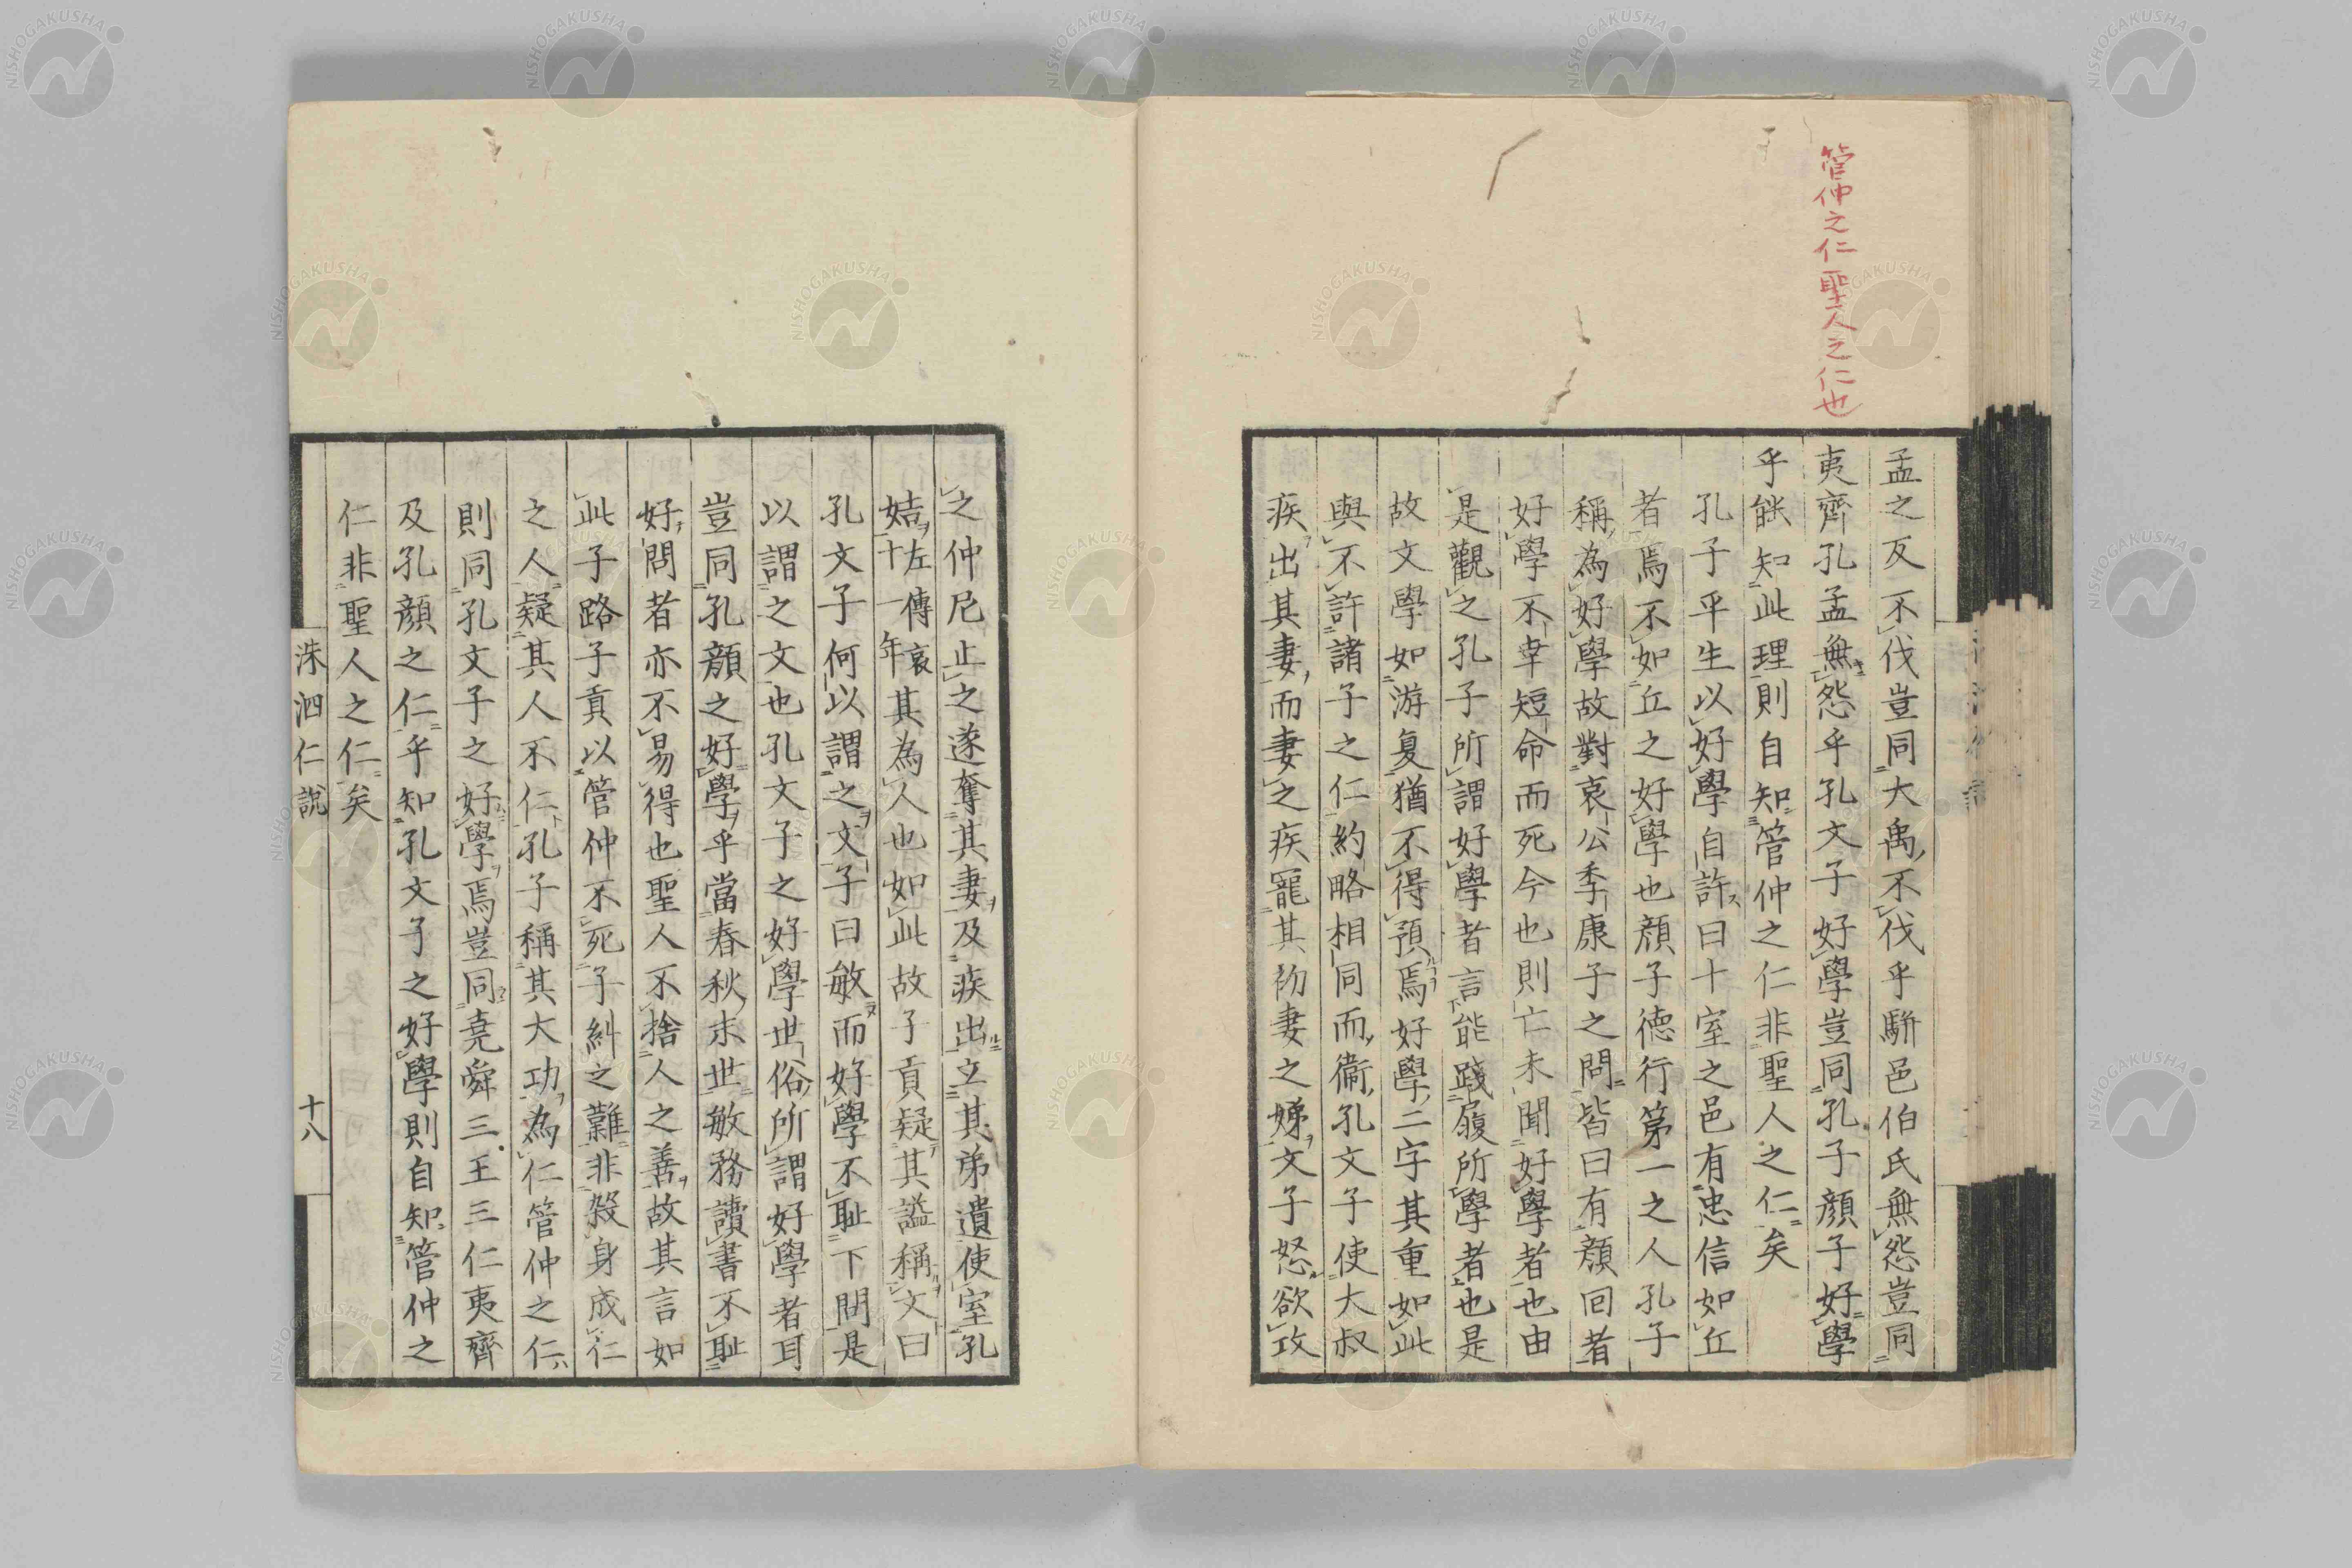 管仲之仁聖人之仁也
孟之反不伐豈同大禹不伐乎駢邑伯氏無怨豈同
夷齊孔孟無怨乎孔文子好學豈同孔子顔子好學
乎能知此理則自知管仲之仁非聖人之仁矣
孔子平生以好學自許曰十室之邑有忠信如丘
者焉不如丘之好學也顔子德行第一之人孔子
稱為好學故對哀公季康子之問皆曰有顔回者
好學不幸短命而死今也則亡未聞好學者也由
是觀之孔子所謂好學者言能踐履所學者也是
故文學如游夏猶不得預焉好學二字其重如此
與不許諸子之仁約略相同而衞孔文子使大叔
疾出其妻而妻之疾寵其初妻之娣文子怒欲攻
之仲尼止之遂奪其妻及疾出立其弟遺使室孔
姞左傳哀十一年其為人也如此故子貢疑其謚稱文曰
孔文子何以謂之文子曰敏而好學不耻下問是
以謂之文也孔文子之好學世俗所謂好學者耳
豈同孔顔之好學乎當春秋末世敏務讀書不耻
好問者亦不易得也聖人不捨人之善故其言如
此子路子貢以管仲不死子糾之難非殺身成仁
之人疑其人不仁孔子稱其大功為仁管仲之仁
則同孔文子之好學焉豈同堯舜三王三仁夷齊
及孔顔之仁乎知孔文子之好學則自知管仲之
仁非聖人之仁矣
洙泗仁說
十八
NISHOGAKUSHA